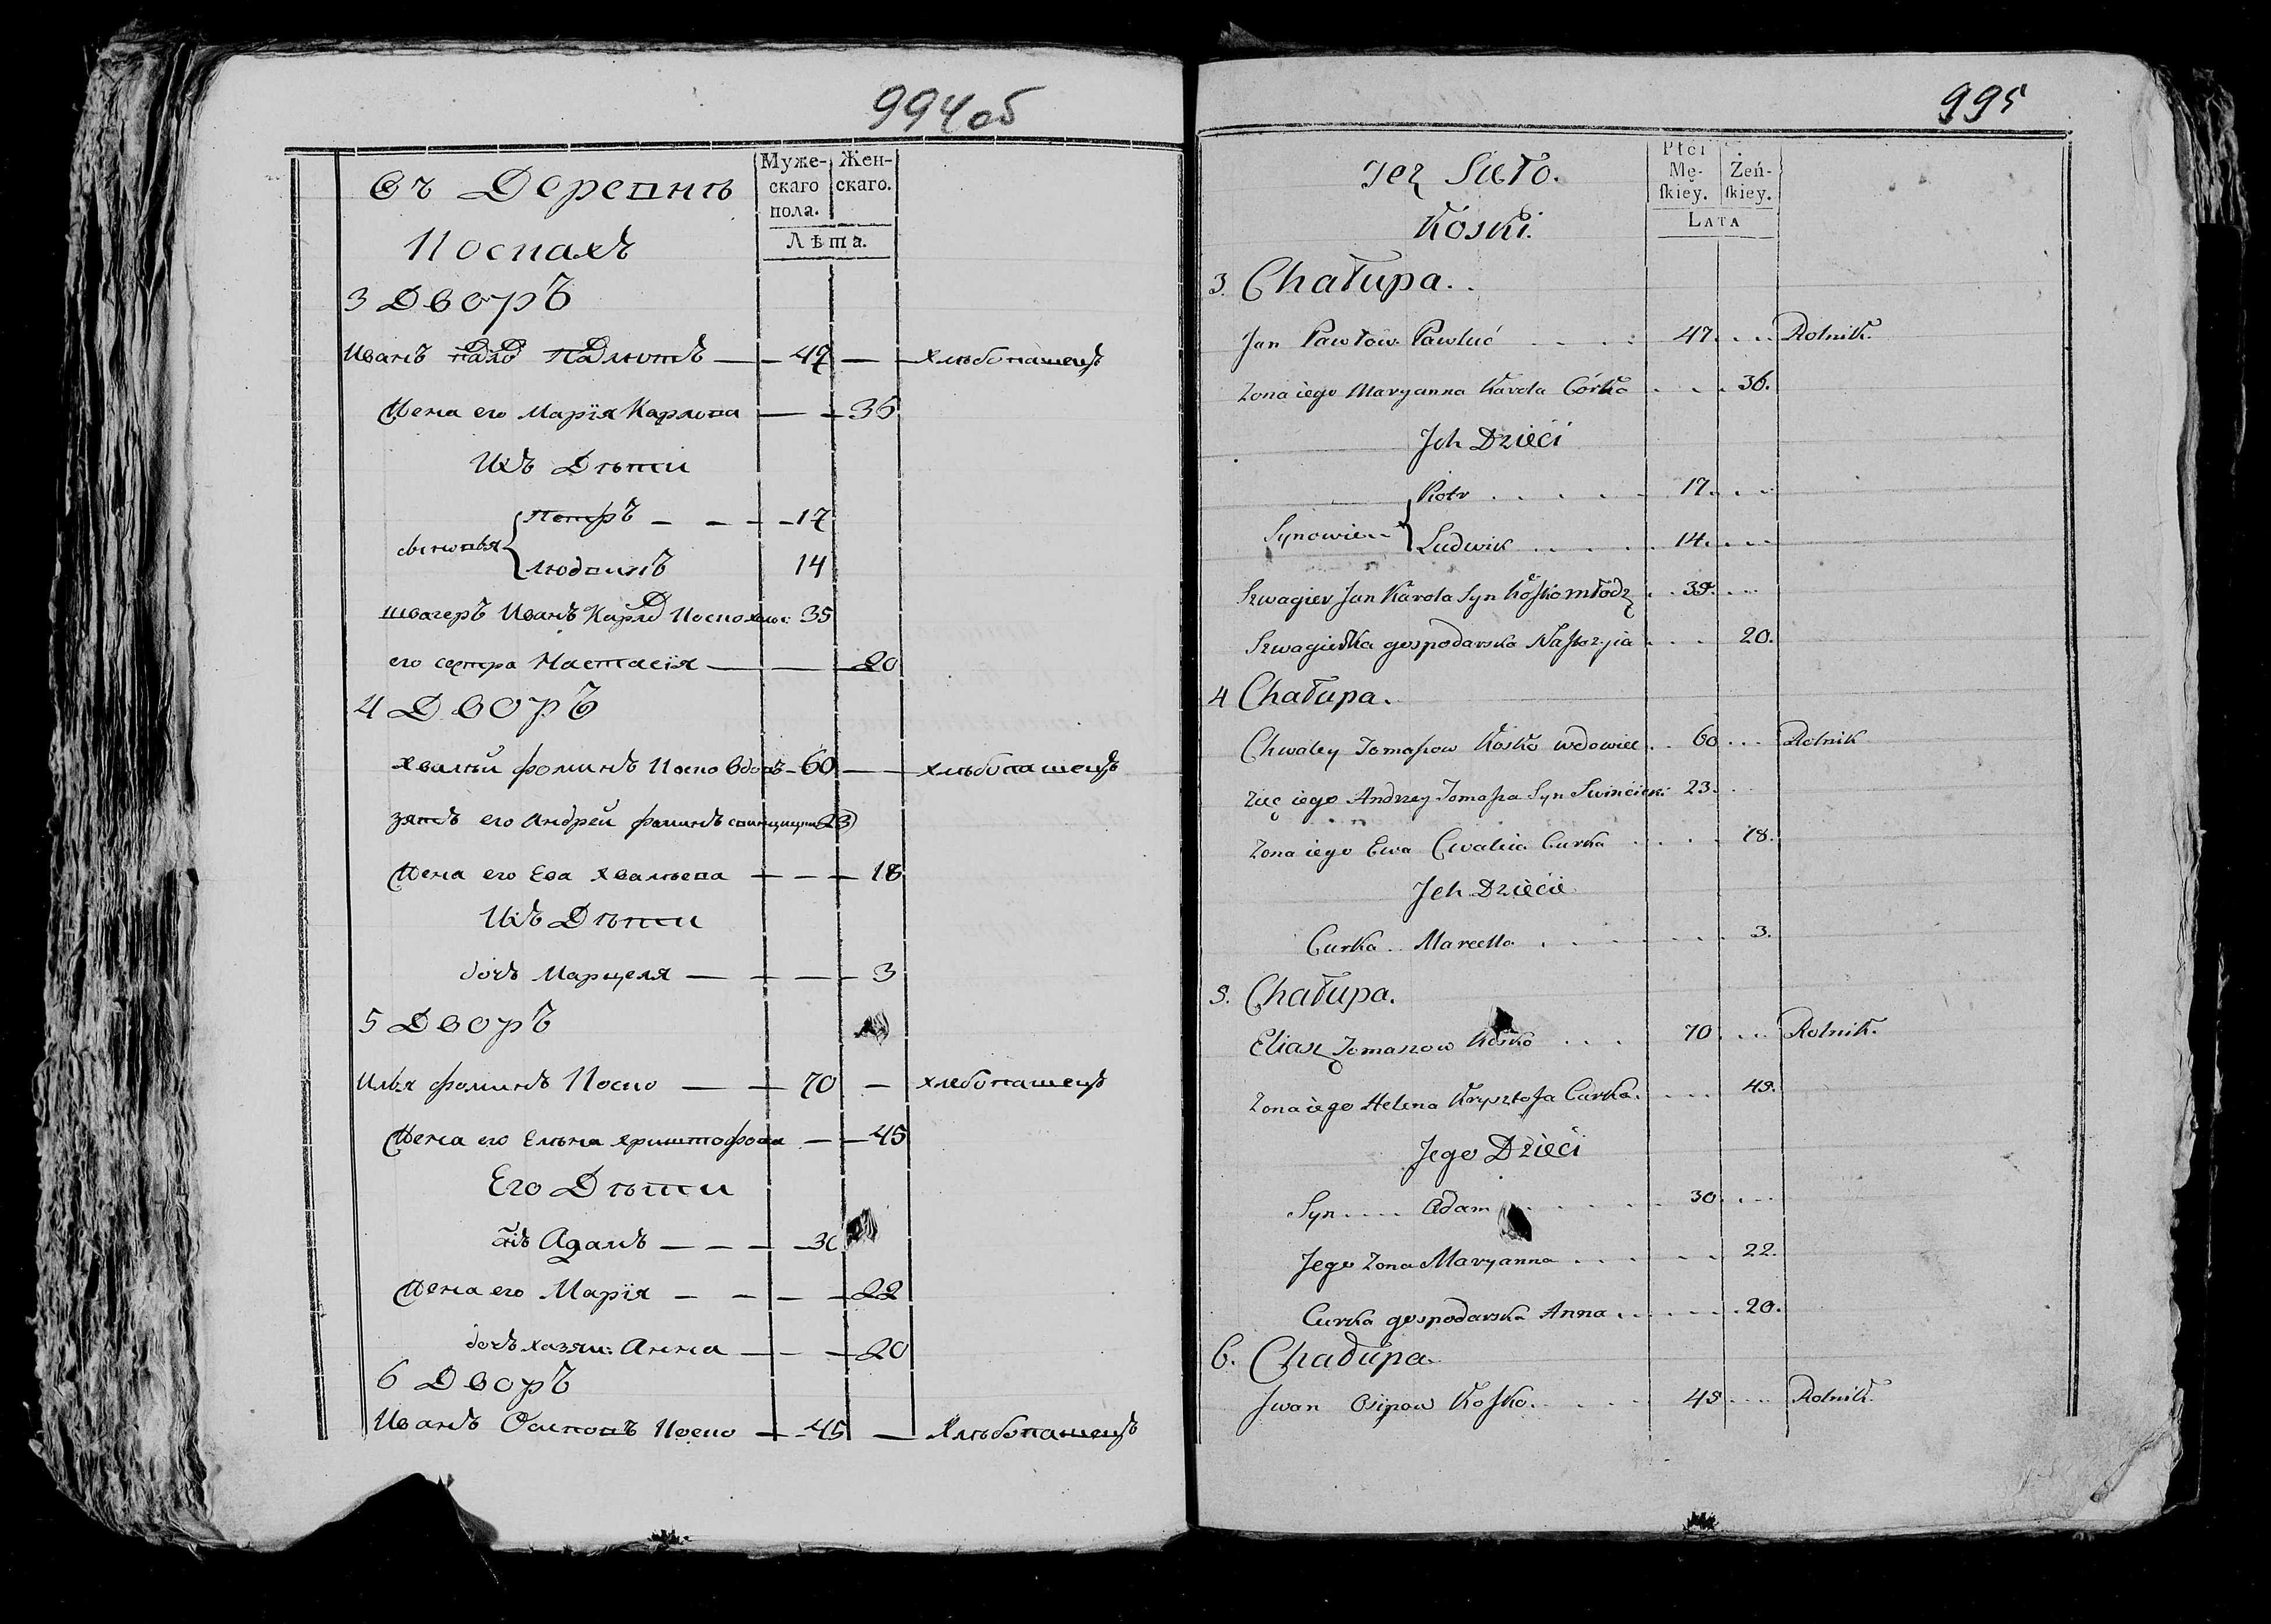 994об
Въ Деревнѣ
Муже-
скаго
пола.
Жен-
скаго.
Лѣта.
Коскахъ
3 Дворъ
Иванъ Павло Павлютъ — 47 — хлѣбопашецъ
Жена его Марія Карлова — 36
Ихъ Дѣти
сыновья
Петръ — 17
Людвикъ 14
швагеръ Иванъ Карло 35
его сестра Настасія — 20
4 Дворъ
Хвалѣй Фоминъ Коско вдовъ — 60 — хлѣбопашецъ
зять его Андрей Фоминъ 23
Жена его Ева Хвалѣева — 18
Ихъ Дѣти
дочь Марцеля — 3
5 Дворъ
Илья Фоминъ Коско — 70 — хлебопашецъ
Жена его Елѣна Криштофова — 45
Его Дѣти
снъ Адамъ — 30
Жена его Марія — 22
дочь хозяи: Анна — 20
6 Дворъ
Иванъ Осиповъ Коско — 45 — Хлѣбопашецъ
995
Płci
Mę-
ſkiey.
Żeń-
ſkiey.
LATA
Koski.
3. Chałupa.
Jan Pawłow Pawluć . . . . 47. . . . Rolnik.
Zona iego Maryanna Karola Córka . . . . 36.
Jch Dzieci
Synowie
Piotr . . . . . 17. . . .
Ludwik . . . . . 14. . . .
Szwagier Jan Karola Syn Koſko młodz . . 35. . . .
Szwagierka gospodarska Naſtazyia . . . . 20.
4 Chałupa.
Chwaley Tomaſzow Kosko wdowiec . . 60 . . . Rolnik
Zięć iego Andrzey Tomaſza Syn Swincicki 23. . .
Zona iego Ewa Cwalia Curka . . . . 18.
Jch Dziecie
Curka . Marcella . . . . . . 3.
5. Chałupa.
Eliasz Tomaszow Kosko . . . 70 . . . . Rolnik.
Zona iego Helena Krysztofa Curka. . . . . 45.
Jego Dzieci
Syn . . . . Adam . . . . . . 30. . . .
Jego Zona Maryanna . . . . . 22.
Curka gospodarska Anna . . . . . . 20.
6. Chałupa.
Jwan Osipow Koſko. . . . . 45 . . . . Rolnik.